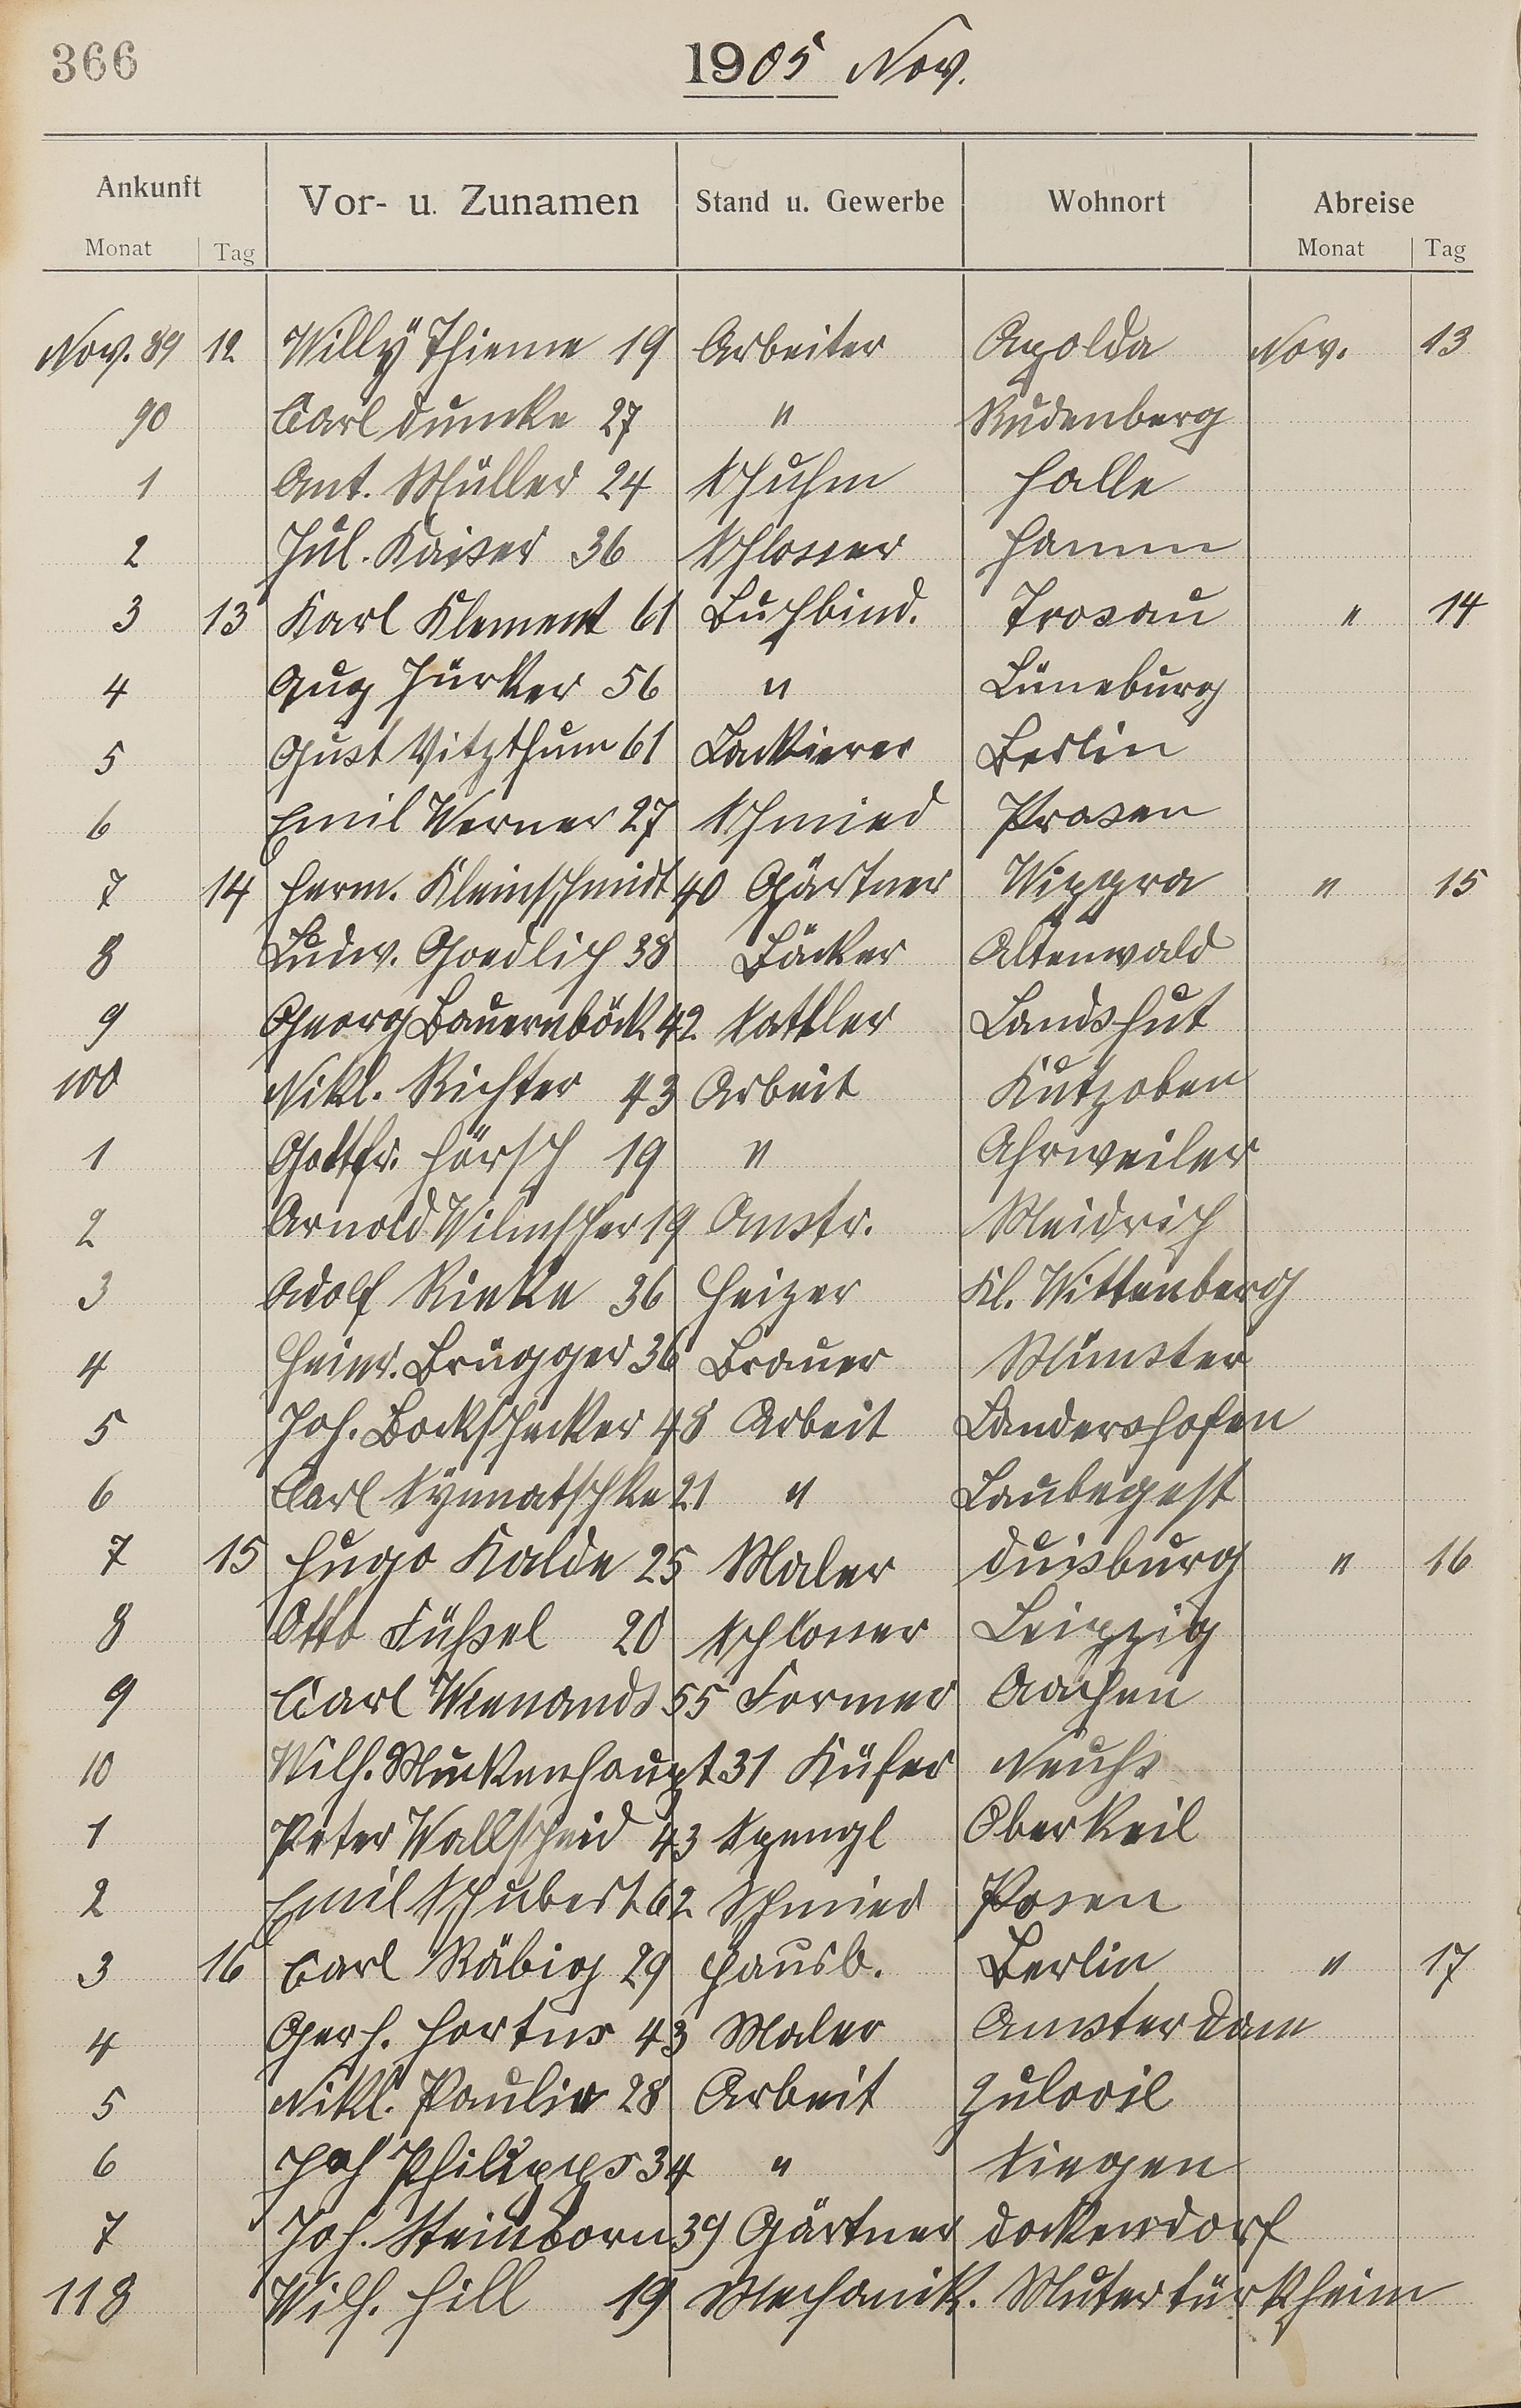 366
1905 Nov.
Ankunft Vor- u. Zunamen Stand u. Gewerbe Wohnort Abreise
Monat Tag Monat Tag
Nov. 89 12 Willy Thieme 19 Arbeiter Apolda Nov. 13
90 Carl Dumke 27 " Rudenberg
1 Ant. Müller 24 Schuhm Halle
2 Jul. Kaiser 36 Schlosser Hamm
3 13 Karl Klement 61 Buchbind. Trosau " 14
4 Aug Jürker 56 " Lüneburg
5 Gust Vitzthum 61 Lackierer Berlin
6 Emil Werner 27 Schmied Prosen
7 14 Herm. Kleinschmidt 40 Gärtner Wippra " 15
8 Ludw. Goedlich 38 Bäcker Altenwald
9 Georg Bauernböck 42 Sattler Landshut
100 Nikl. Richter 43 Arbeit Kutzoben
1 Gottfr. Hörsch 19 " Ahrweiler
2 Arnold 19 Anstr. Meidrich
3 Adolf Rieke 36 Heizer Kl. Wittenberg
4 Heinr. Brügger 36 Brauer Münster
5 Joh. Bockshecker 48 Arbeit Landershofen
6 Carl Synnatschke 21 " Laubegest
7 15 Hugo Kalde 25 Maler Duisburg " 16
8 Otto Füßel 20 Schlosser Leipzig
9 Carl Wienands 55 Former Aachen
10 Wilh. Muckenhaupt 31 Küfer Neuhs
1 Peter Wallscheid 43 Spengl Oberkeil
2 Emil Schubert 62 Schmied Posen
3 16 Carl Räbig 29 Hausb. Berlin " 17
4 Gerh. Hortus 43 Maler Amsterdam
5 Nikl. Paulin 28 Arbeit
6 Joh Philipps 34 " Siegen
7 Joh. Steinborn 39 Gärtner Dockendorf
118 Wilh. Hill 19 Mechanik. Untertürkheim